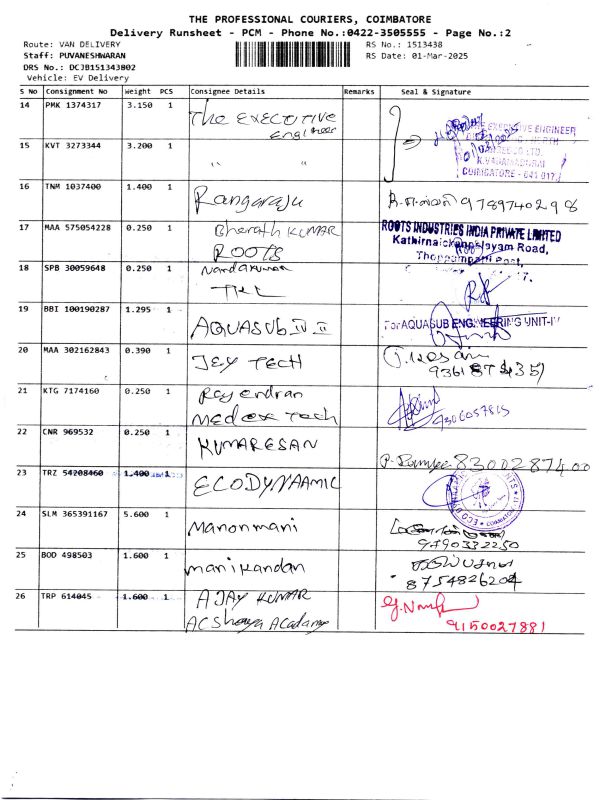 THE PROFESSIONAL COURIERS, COIMBATORE
Delivery Runsheet - PCM - Phone No.:0422-3505555 - Page No.:2
Route: VAN DELIVERY
RS No.: 1513438
Staff: PUVANESHWARAN
RS Date: 01-Mar-2025
DRS No.: DCJB151343802
Vehicle: EV Delivery
S No Consignment No Weight PCS Consignee Details Remarks Seal & Signature
14 PMK 1374317 3.150 1 The EXECUTIVE
Engineer
EXECUTIVE ENGINEER
15 KVT 3273344 3.200 1 " "
COIMBATORE - 641 017
16 TNM 1037400 1.400 1 Rangaraju 9789740298
17 MAA 575054228 0.250 1 Bharath KUMAR
ROOTS
ROOTS INDUSTRIES INDIA PRIVATE LIMITED
Kathirnaickenpalayam Road,
Thoppampatti Post,
18 SPB 30059648 0.250 1 Nandakumar
19 BBI 100190287 1.295 1 AQUASUB IV II
For AQUASUB ENGINEERING UNIT-IV
20 MAA 302162843 0.390 1 JEY TECH
21 KTG 7174160 0.250 1 Rajendran
Medox Tech
22 CNR 969532 0.250 1 KUMARESAN
8300287400
23 TRZ 54208460 1.400 1 ECODYNAAMIC
24 SLM 365391167 5.600 1 Manonmani
9790332250
25 BOD 498503 1.600 1 manikandan
8754826204
26 TRP 614045 1.600 1 AJAY KUMAR
9150027881